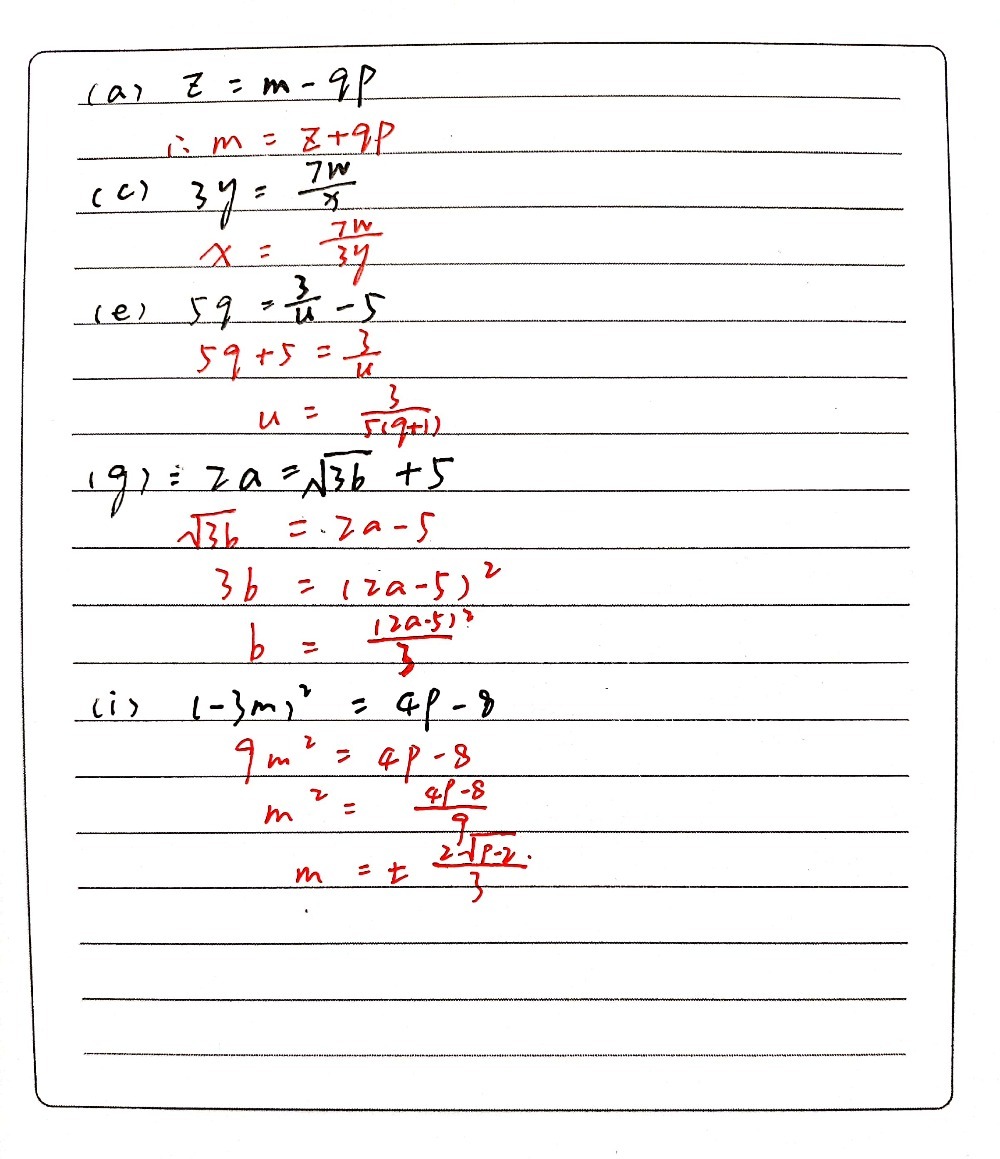 (a) z = m - qp
∴ m = z + qp
(c) 3y = 7w/x
x = 7w/3y
(e) 5q = 3/u - 5
5q + 5 = 3/u
u = 3/5(q+1)
(g) : 2a = √3b + 5
√3b = 2a - 5
3b = (2a-5)²
b = (2a-5)²/3
(i) (-3m)² = 4p - 8
9m² = 4p - 8
m² = 4p-8/9
m = ± 2√p-2/3